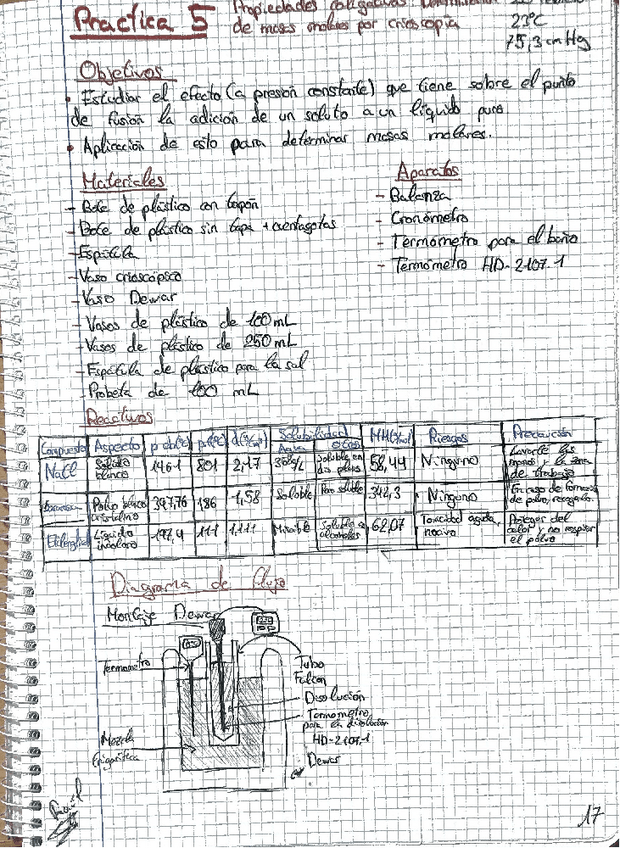 Practica 5 Propiedades coligativas: Determinación
de masas molares por crioscopia
23ºC
75,3 cm Hg
Objetivos
• Estudiar el efecto (a presión constante) que tiene sobre el punto
de fusión la adición de un soluto a un líquido puro
• Aplicación de esto para determinar masas molares.
Materiales
- Bote de plástico con tapón
- Bote de plástico sin tapa + cuentagotas
- Espátula
- Vaso crioscópico
- Vaso Dewar
- Vasos de plástico de 100 mL
- Vasos de plástico de 250 mL
- Espátula de plástico para la sal
- Probeta de 100 mL
Aparatos
- Balanza
- Cronómetro
- Termómetro para el baño
- Termómetro HD-2107.1
Reactivos
Compuesto Aspecto p.eb(ºC) p.f(ºC) Solubilidad Riesgos Precaución
Agua otros
NaCl Sólido blanco 1461 801 2,17 Soluble en 58,44 Ninguno Lavarse las manos y la zona de trabajo
Polvo blanco cristalino 397,76 186 1,58 Soluble Poco soluble 342,3 Ninguno En caso de formación de polvo, recogerlo
Etilenglicol Líquido incoloro 197,4 1,111 Miscible Soluble en alcoholes 62,07 Toxicidad aguda, nocivo Proteger del calor y no respirar el polvo
Diagrama de flujo
Montaje Dewar
Termómetro
Mezcla
frigorífica
Tubo
Falcon
Disolución
Termometro
para la disolución
HD-2107.1
Dewar
17